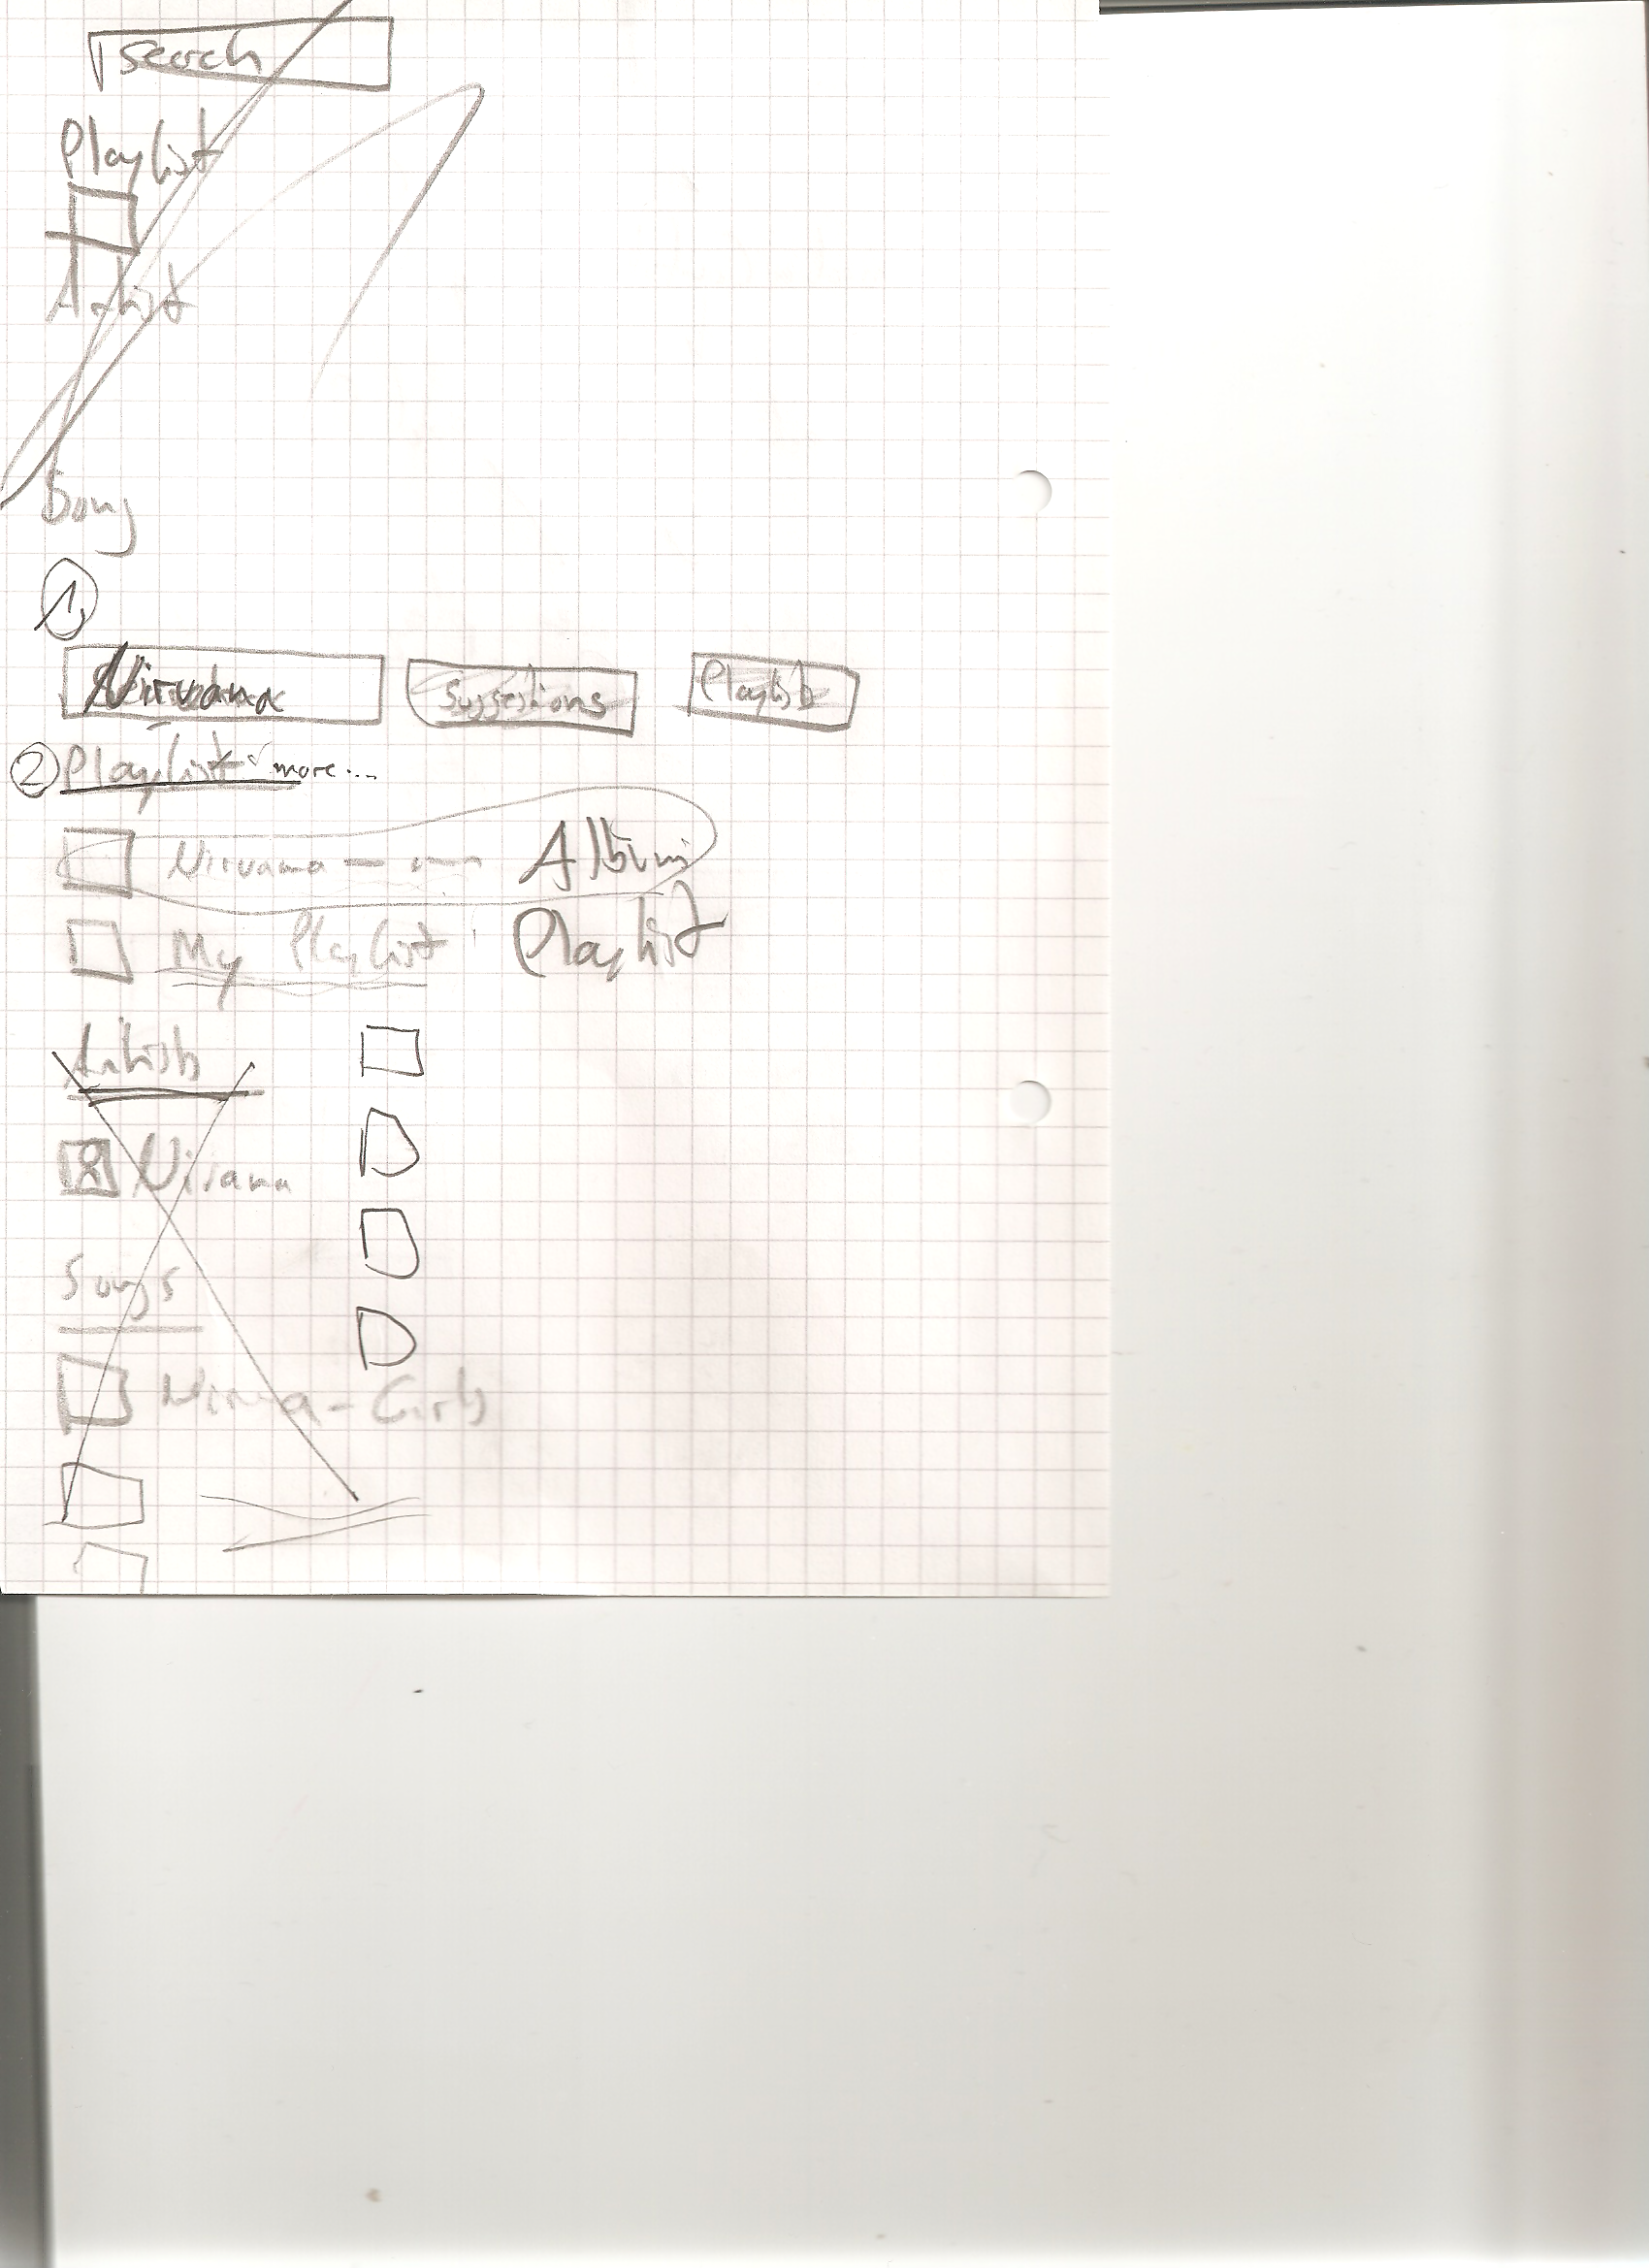 Search
Playlist
Artist
Song
1.
Nirvana Suggestions Playlist
2 Playlist more...
Nirvana Album
My Playlist Playlist
Artists
Nirvana
Songs